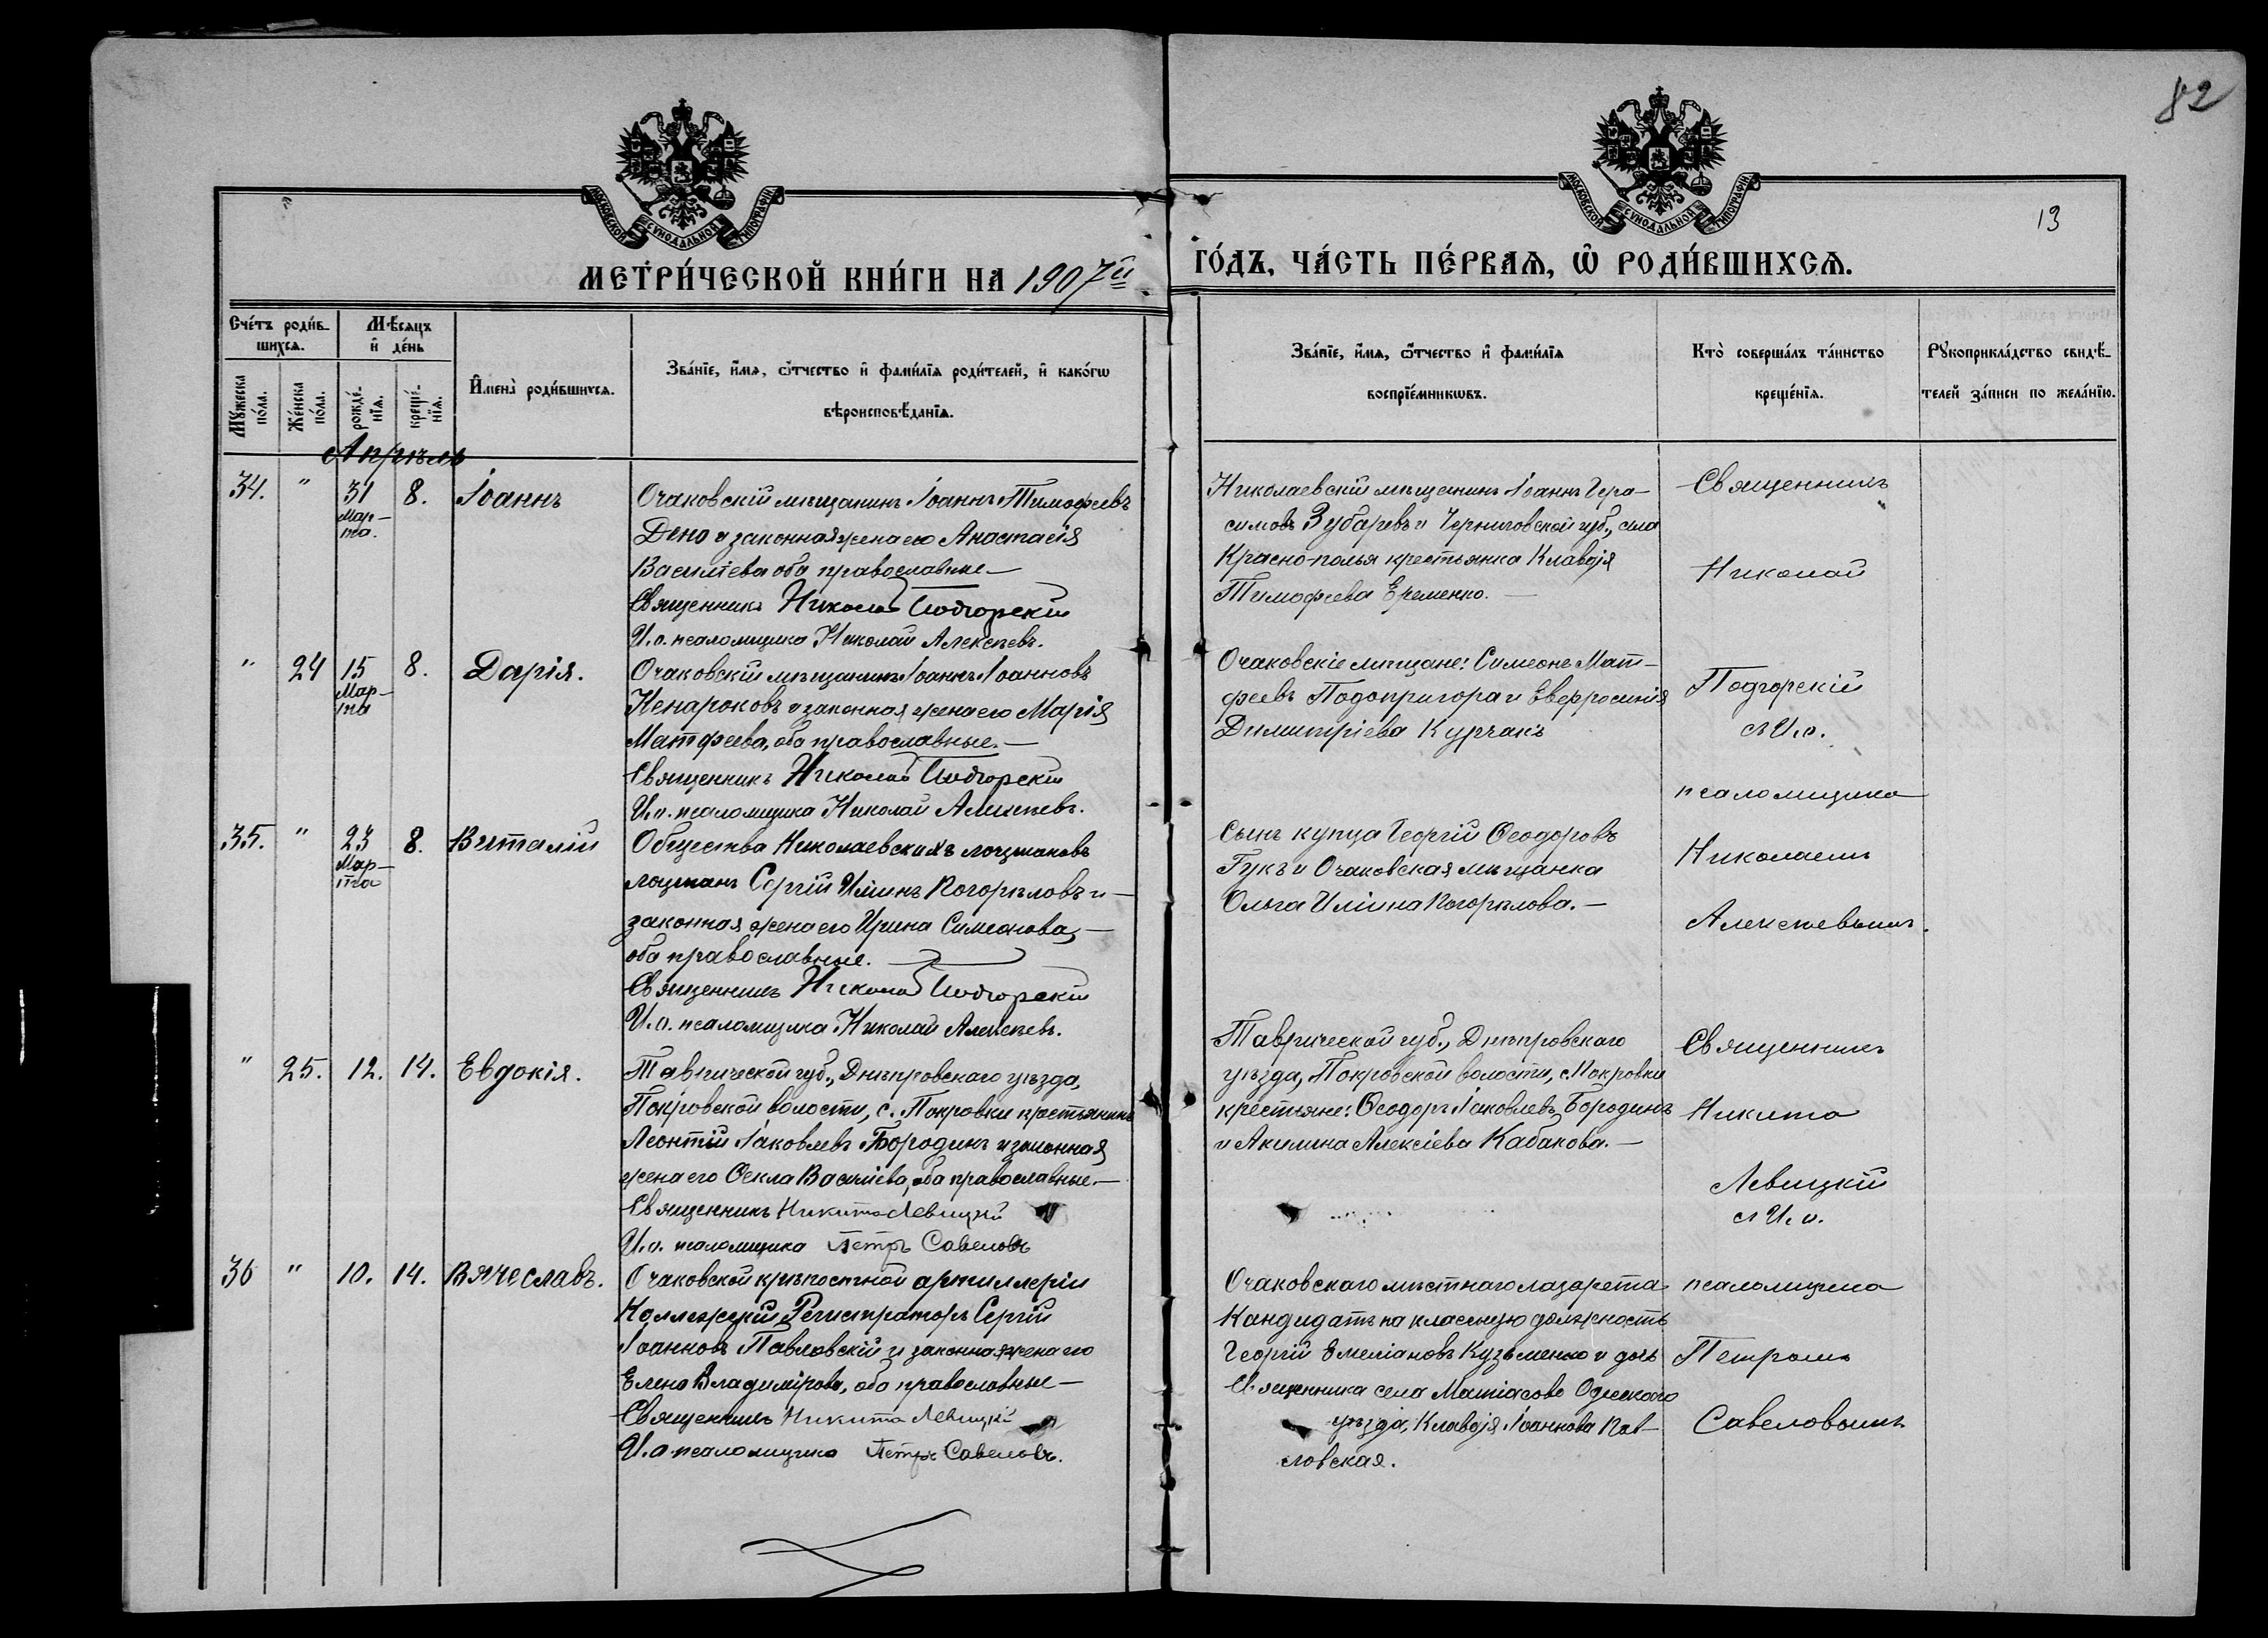 82
13
МОСКОВСКОЙ СѴНОДАЛЬНОЙ ТИПОГРАФІИ
МОСКОВСКОЙ СѴНОДАЛЬНОЙ ТИПОГРАФІИ
МЕТРИ́ЧЕСКОЙ КНИ́ГИ НА 1907й
ГО́ДЪ, ЧА́СТЬ ПЕ́РВАѦ, Ѡ҆ РОДИ́ВШИХСѦ.
Сче́тъ роди́в-
шихсѧ.
Мѣ́сѧцъ
и҆ де́нь
Мꙋ́жеска по́ла.
Же́нска по́ла.
рожде́-нїѧ.
креще́-нїѧ.
И҆мена̀ роди́вшихсѧ.
Зва́нїе, и҆́мѧ, ѻ҆́тчество и҆ фами́лїѧ роди́телей, и҆ како́гѡ
вѣроисповѣ́данїѧ.
Зва́нїе, и҆́мѧ, ѻ҆́тчество и҆ фами́лїѧ
воспрїе́мникѡвъ.
Кто̀ соверша́лъ та́инство
креще́нїѧ.
Рꙋкоприкла́дство свидѣ́-
телей за́писи по жела́нїю.
Апрѣль
34. " 31 Мар-
та. 8. Іоаннъ
Очаковскій мѣщанинъ Іоаннъ Тимофеевъ
Дено и законная жена его Анастасія
Василіева оба православные—
Священникъ Николай Подгорскій
И.о. псаломщика Николай Алексѣевъ.
Николаевскій мѣщанинъ Іоаннъ Гера-
симовъ Зубаревъ и Черниговской губ., села
Красно-полья крестьянка Клавдія
Тимофеева Еременко.—
Священникъ
Николай
" 24 15 Мар-
та 8. Дарія.
Очаковскій мѣщанинъ Іоаннъ Іоанновъ
Ненароковъ и законная жена его Марія
Матфеева, оба православные.—
Священникъ Николай Подгорскій
И.о. псаломщика Николай Алексѣевъ.
Очаковскіе мѣщане: Симеонъ Мат-
феевъ Подопригора и Евфросинія
Димитріева Курчакъ
Подгорскій
съ И.о.
псаломщика
35. " 23 Мар-
та 8. Виталій
Общества Николаевскихъ лоцмановъ
лоцманъ Сергій Иліинъ Погорѣловъ и—
законная жена его Ирина Симеонова,—
оба православные.
Священникъ Николай Подгорскій
И.о. псаломщика Николай Алексѣевъ.
Сынъ купца Георгій Ѳеодоровъ
Гукъ и Очаковская мѣщанка
Ольга Иліина Погорѣлова.—
Николаемъ
Алексѣевымъ.
" 25. 12. 14. Евдокія.
Таврической губ., Днѣпровскаго уѣзда,
Покровской волости, с. Покровки крестьянинъ
Леонтій Іаковлевъ Бородинъ и законная
жена его Ѳекла Василіева, оба православные.—
Священникъ Никита Левицкій
И.о. псаломщика Петръ Савеловъ
Таврической губ., Днѣпровскаго
уѣзда, Покровской волости, с. Покровки
крестьяне: Ѳеодоръ Іаковлевъ Бородинъ
и Акилина Алексіева Кабакова.—
Священникъ
Никита
Левицкій
съ И.о.
36 " 10. 14. Вячеславъ.
Очаковской крѣпостной артиллеріи
Коллежскій Регистраторъ Сергій
Іоанновъ Павловскій и законная жена его
Елена Владимірова, оба православные—
Священникъ Никита Левицкій
И.о. псаломщика Петръ Савеловъ.
Очаковскаго мѣстнаго лазарета
Кандидатъ на классную должность
Георгій Емеліановъ Кузьменко и дочь
Священника села Матіасово Одесскаго
уѣзда, Клавдія Іоаннова Пав-
ловская.
псаломщика
Петромъ
Савеловымъ